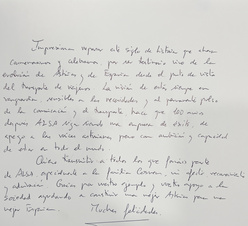 Impresiona repasar este siglo de historia que ahora
conmemoramos y celebramos, por ser testimonio vivo de la
evolución de Asturias y de España desde el punto de vista
del transporte de viajeros. La visión de estar siempre en
vanguardia, sensible a las necesidades y al permanente pulso
de la comunicación y el transporte hace que 100 años
después ALSA siga siendo una empresa de éxito, de
apego a las raíces asturianas pero con ambición y capacidad
de estar en todo el mundo.
Quiero transmitir a todos los que forman parte
de ALSA, especialmente a la familia Cosmen, mi afecto, reconocimiento
y admiración. Gracias por vuestro ejemplo y vuestro apoyo a la
Sociedad ayudando a construir una mejor Asturias para una
mejor España.
Muchas felicidades.